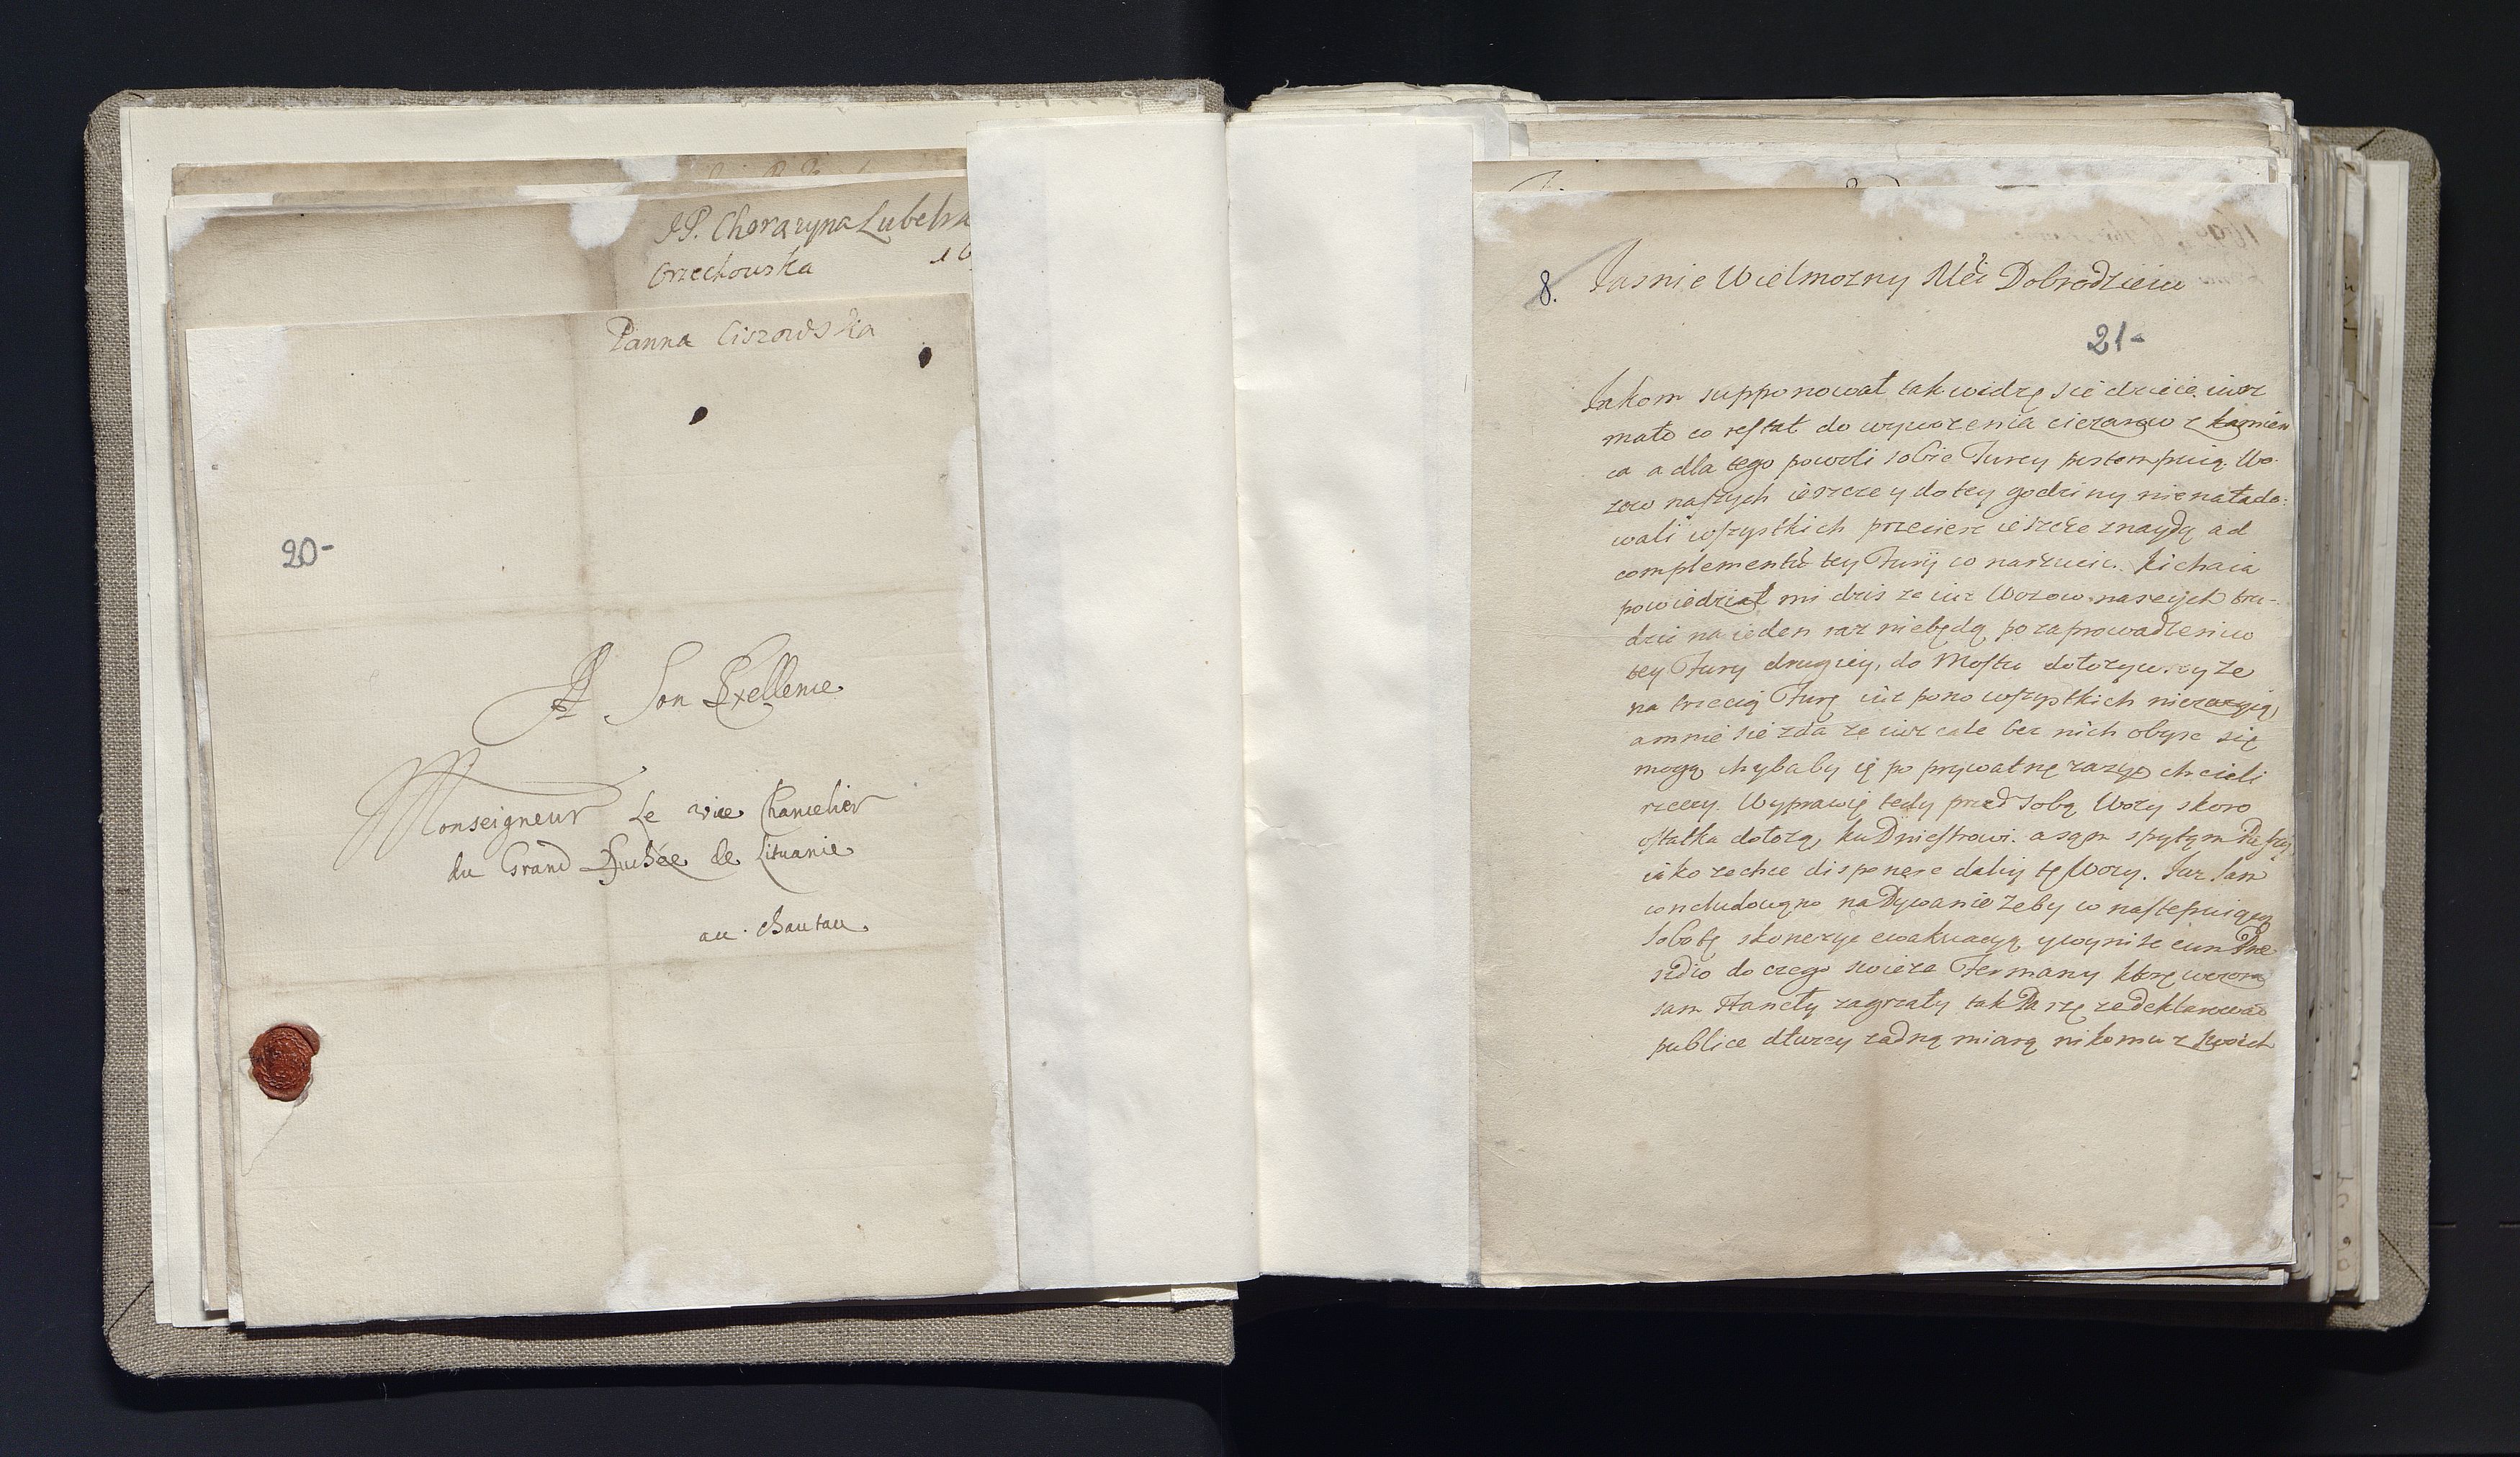 JP. Chorazyna Lubelsk
Orzechowska
16
Panna Ciszowska
20-
A Son Exellence
Monseigneur Le vice Chancelier
du Grand Duchée de Lituanie
au chautau
8. Jasnie Wielmozny Mći Dobrodzieiu
21-
Jakom supponował tak widzę sie dzieie iusz
mało co restat do wywozenia ciezarow z kamien
ca a dla tego powoli sobie Turcy postempuią. Wo-
zow naszych ieszcze y do tey godziny nie nałado-
wali wszystkich przeciesz ieszcze znaydą ad
complementũ tey Furÿ co narzucic. Kichaia
powiedział mi dzis ze iuz Wozow naszych tru-
dzic na ieden raz niebędą po zaprowadzeniu
tey Fury drugiey, do Mostu dołozywszy ze
na trzecią Furę iuz pono wszystkich niezazyią,
a mnie sie zda ze iusz cale bez nich obyse się
mogą chybaby ię po prywatnę zazyc chcieli
rzeczy. Wyprawię tedy przed sobą Wozy skoro
ostatka dołozą, ku Dniestrowi. a sąm spytąm
iako zechce disponere daley tę Wozy. Juz sam
concludowąno na Dywanie zeby w następuiącą
Sobotę skonczyc ewakuacyą y wynise cum Prae
sidio do czego swieze Fermany ktorę wczora
sam stanęły zagrzały tak ze deklarował
publice dturcy zadną miarą nikomu z swoich